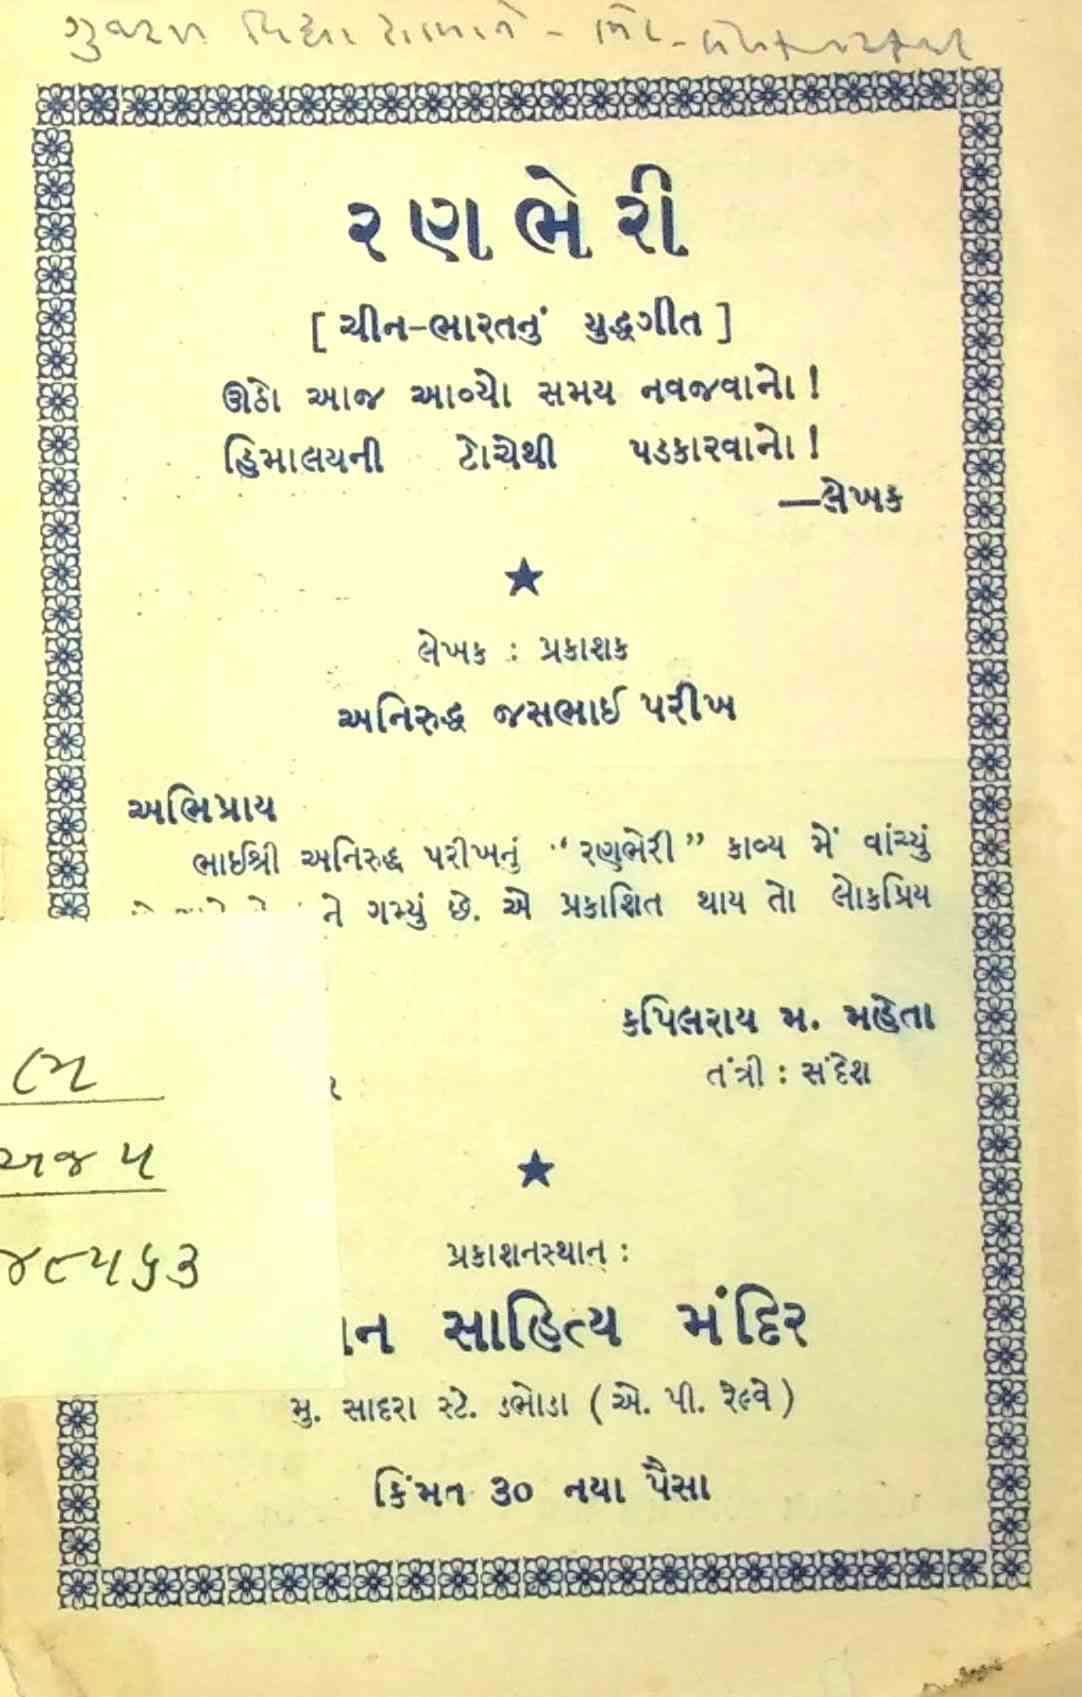 રણભેરી
[ ચીન-ભારતનું યુદ્ધગીત ]
ઊઠો આજ આવ્યો સમય નવજવાનો !
હિમાલયની ટોચેથી પડકારવાનો !
—લેખક
લેખક : પ્રકાશક
અનિરુદ્ધ જસભાઈ પરીખ
અભિપ્રાય
ભાઈશ્રી અનિરુદ્ધ પરીખનું “રણભેરી” કાવ્ય મેં વાંચ્યું
ને ગમ્યું છે. એ પ્રકાશિત થાય તો લોકપ્રિય
કપિલરાય મ. મહેતા
તંત્રી : સંદેશ
ભ
અજ ૫
૪૮૫૬૩
પ્રકાશનસ્થાન :
સાહિત્ય મંદિર
મુ. સાદરા સ્ટે. ડભોડા ( એ. પી. રેલ્વે )
કિંમત ૩૦ નયા પૈસા